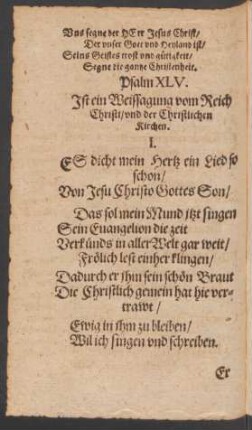 Vns segne der HErr Jesus Christ/
Der vnser Gott vnd Heyland ist/
Seins Geistes trost vnd gütigkeit/
Segne die gantze Christenheit.
Psalm XLV.
Ist ein Weissagung vom Reich
Christi/vnd der Christlichen
Kirchen.
I.
ES dicht mein Hertz ein Lied so
schon/
Von Jesu Christo Gottes Son/
Das sol mein Mund itzt singen
Sein Euangelion die zeit
Verkünds in aller Welt gar weit/
Frölich lest einher klingen/
Dadurch er ihm sein schön Braut
Die Christlich gemein hat hie ver-
trawt/
Ewig in ihm zu bleiben/
Wil ich singen vnd schreiben.
Er